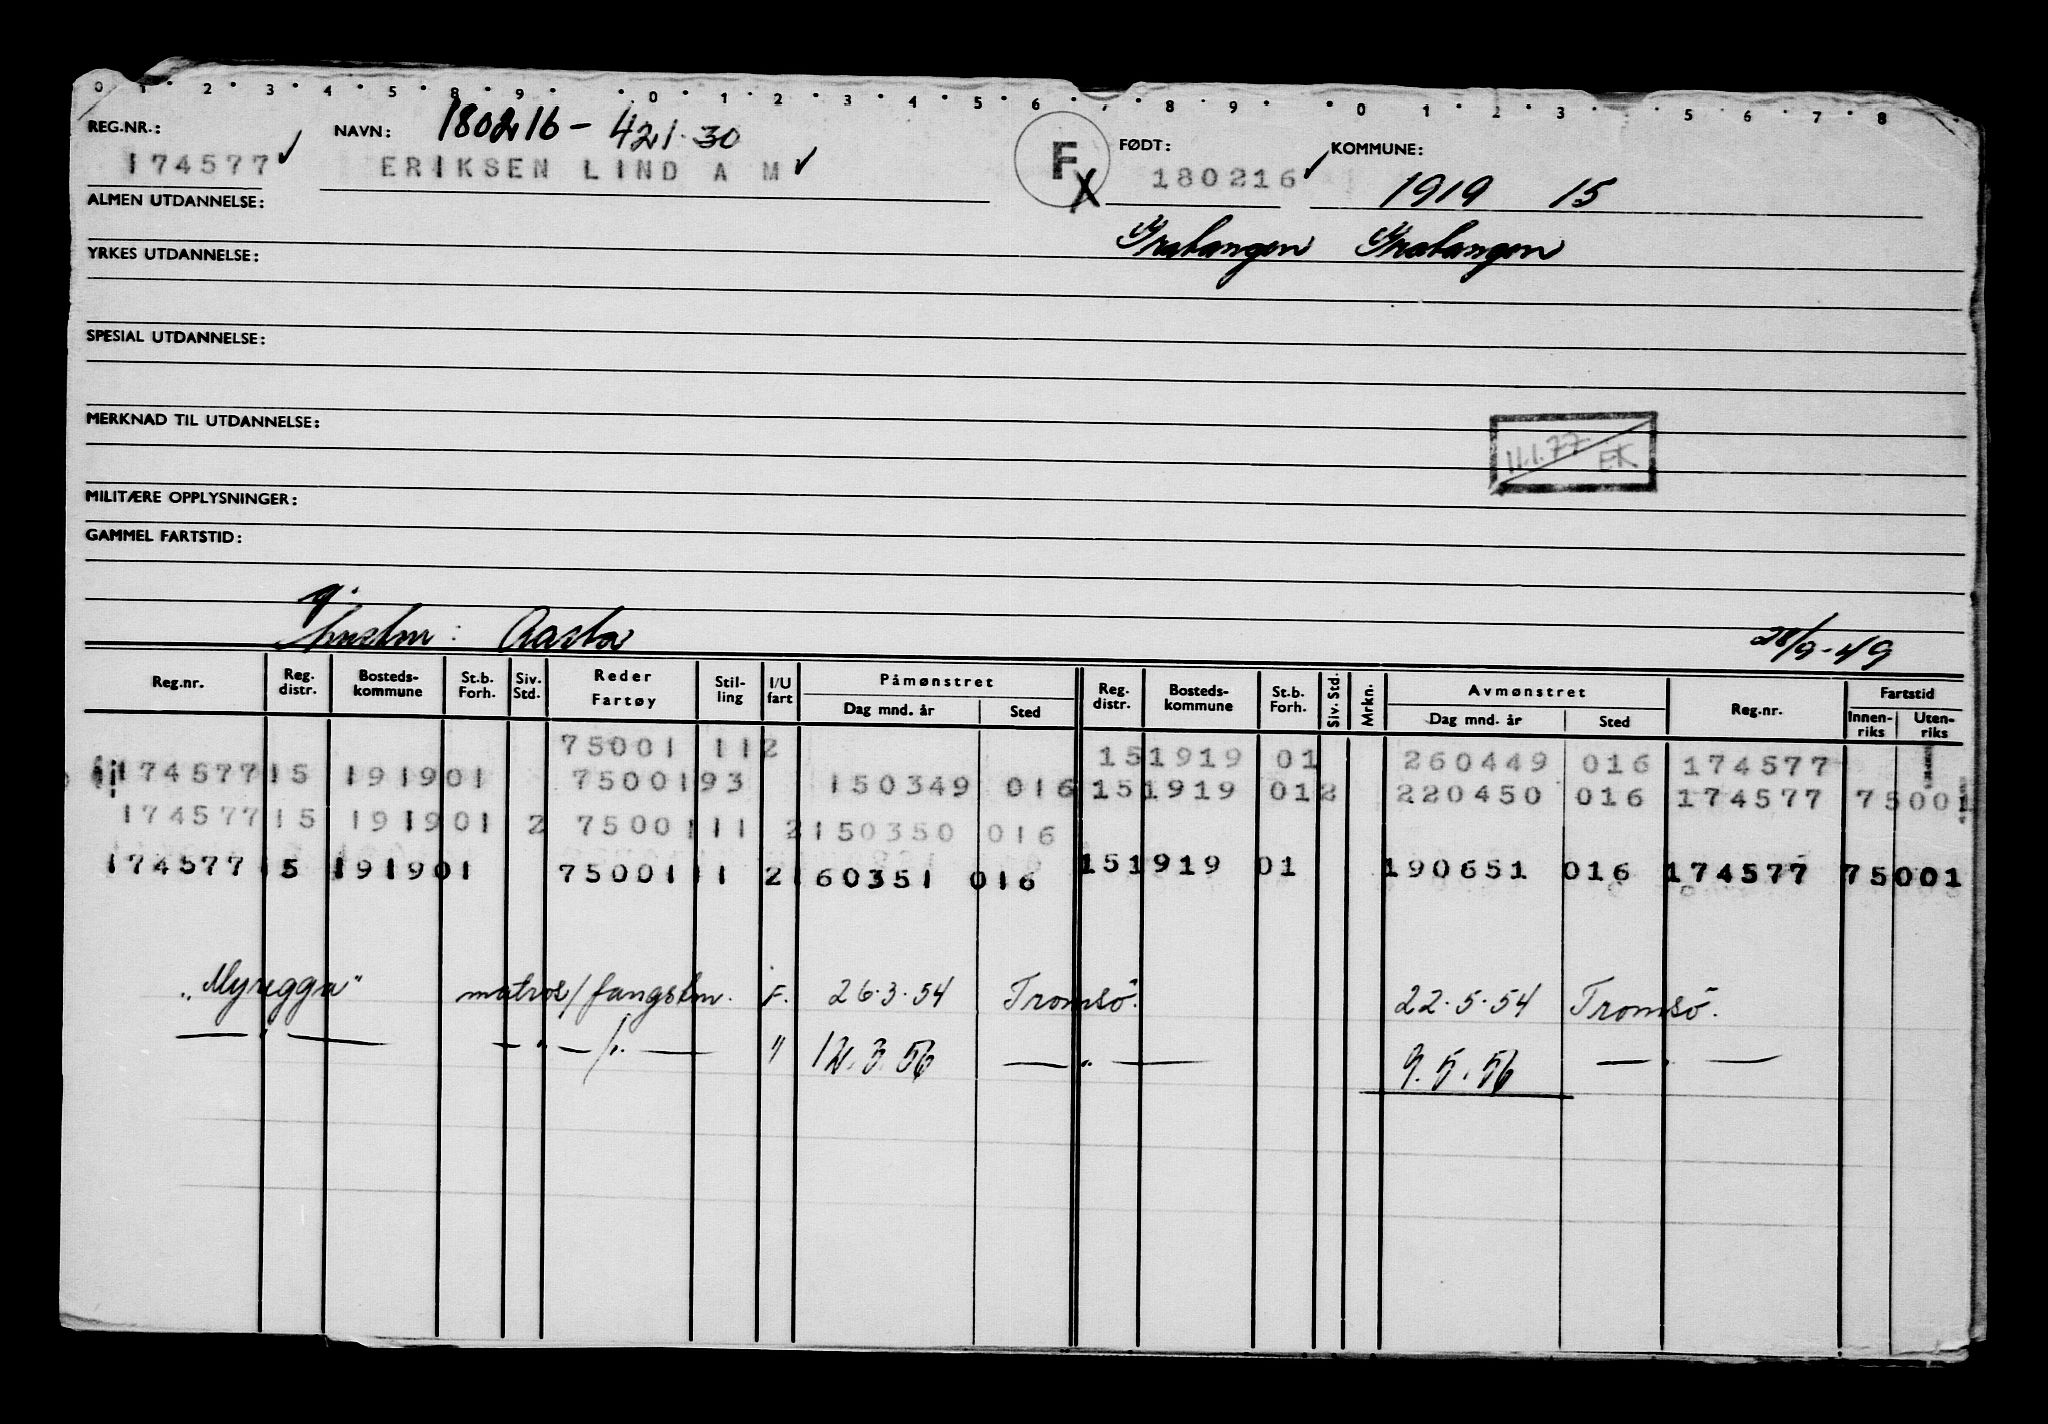 0 · 1 · 2 · 3 · 4 · 5 · 8 · 9 · · 0 · 1 · 2 · 3 · 4 · 5 · 6 · · 8 · 9 · · 0 · 1 · 2 · 3 · · 5 · 6 · 7 · 8
REG.NR.: NAVN: 180216 - 421 30 F FØDT: KOMMUNE:
174577 ✓ ERIKSEN LIND A M ✓ X 180216 ✓ 1919 15
ALMEN UTDANNELSE: Gratangen Gratangen
YRKES UTDANNELSE:
SPESIAL UTDANNELSE:
MERKNAD TIL UTDANNELSE:
11.1.77 EK
MILITÆRE OPPLYSNINGER:
GAMMEL FARTSTID:
: Aasta 28/9-49
Reg.nr. Reg. distr. Bosteds- kommune St.b. Forh. Siv. Std. Reder Fartøy Stil- ling I/U fart Påmønstret Dag mnd. år Sted Reg. distr. Bosteds- kommune St.b. Forh. Siv. Std. Mrkn. Avmønstret Dag mnd. år Sted Reg.nr. Fartstid Innen- riks Uten- riks
75001 112 151919 01 260449 016 174577
174577 15 1919 01 75001 93 150349 016 151919 012 220450 016 174577 75001
174577 15 1919 01 2 75001 11 2 150350 016
174577 15 1919 01 75001 11 2 160351 016 151919 01 190651 016 174577 75001
"Myregga" matros/fangstm. F. 26.3.54 Tromsö. 22.5.54 Tromsö.
— " — — " — / " — " 12.3.56 — " — 9.5.56 — " —